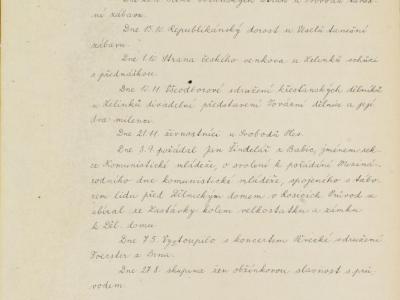 ní zábavu.
Dne 15.10. Republikánský dorost u Veselů taneční
zábavu.
Dne 1.10. Strana českého venkova u Kelinků schůzi
s přednáškou.
Dne 10.11. Všeodborové sdružení křesťanských dělníků
u Kelinků divadelní představení Tovární dělnice a její
dva milenci.
Dne 21.11. živnostníci u Svobodů ples.
Dne 3.9. pořádal Jan Šindelář z Babic, jménem sek-
ce Komunistické mládeže, o svolení k pořádání Mezině-
rodního dne komunistické mládeže, spojeného s tábo-
rem lidu před Dělnickým domem v Rosicích. Průvod se
sbíral ze Zastávky kolem velkostatku a zámku
k Děl. domu.
Dne 7.5. Vystoupilo s koncertem Pěvecké sdružení
Foerster z Brna.
Dne 27.8. skupina žen obžinkovou slavnost s prů-
vodem.